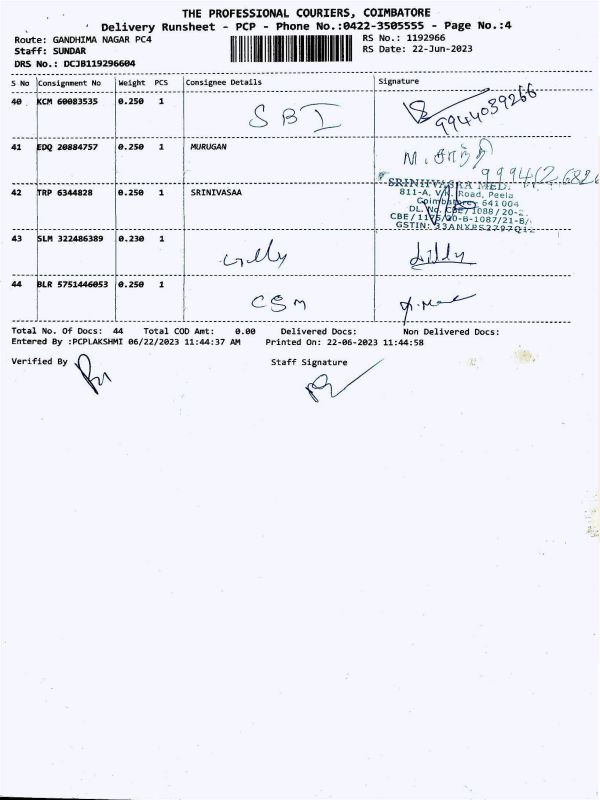 THE PROFESSIONAL COURIERS, COIMBATORE
Delivery Runsheet - PCP - Phone No.:0422-3505555 - Page No.:4
Route: GANDHIMA NAGAR PC4 RS No.: 1192966
Staff: SUNDAR RS Date: 22-Jun-2023
DRS No.: DCJB119296604
S No Consignment No Weight PCS Consignee Details Signature
40 KCM 60083535 0.250 1 SBI 9944039266
41 EDQ 20884757 0.250 1 MURUGAN M. சாந்தி
42 TRP 6344828 0.250 1 SRINIVASAA
811-A, V.K. Road, Peela
Coimbatore - 641 004
43 SLM 322486389 0.230 1
44 BLR 5751446053 0.250 1 CSM
Total No. Of Docs: 44 Total COD Amt: 0.00 Delivered Docs: Non Delivered Docs:
Entered By :PCPLAKSHMI 06/22/2023 11:44:37 AM Printed On: 22-06-2023 11:44:58
Verified By Staff Signature